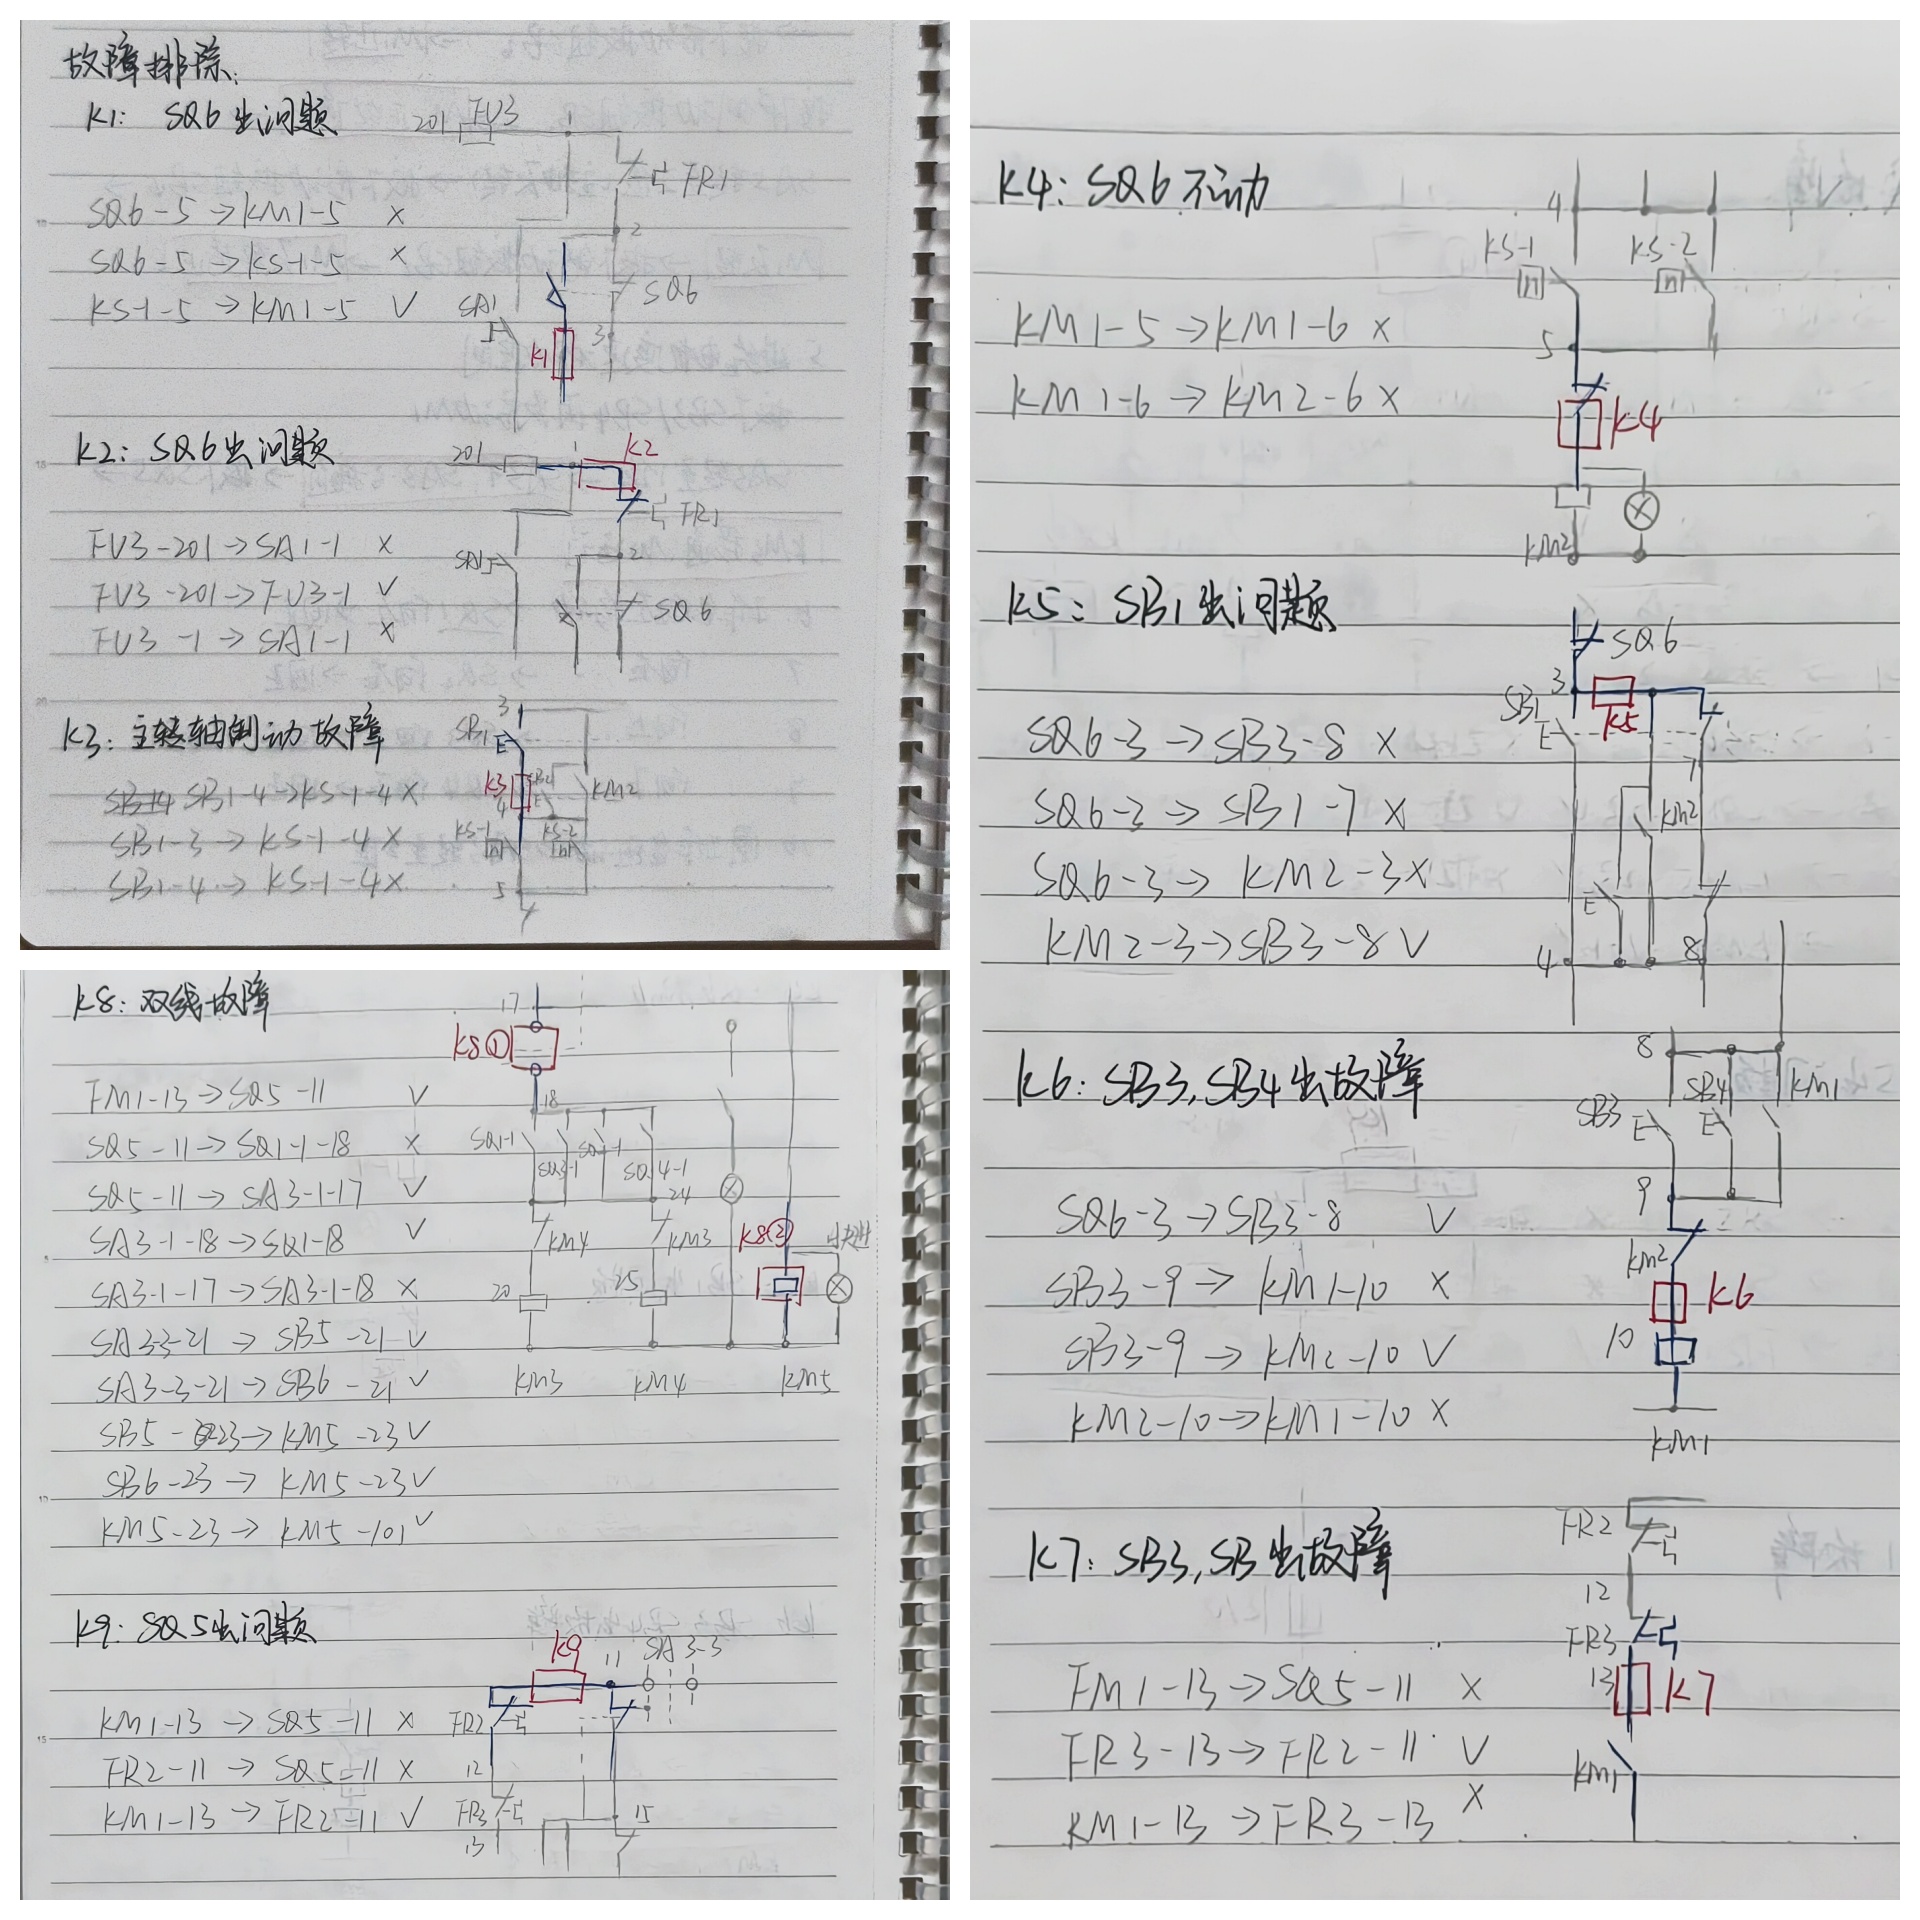 故障排除:
K1: SQ6出问题
201 FU3
1
FR1
SQ6-5→KM1-5 ×
2
SQ6-5→KS-1-5 ×
SQ6
KS-1-5→KM1-5 √
SA1
3
K1
K2: SQ6出问题
201
1
K2
FR1
FU3-201→SA1-1 ×
SA1
2
FU3-201→FU3-1 √
SQ6
FU3-1→SA1-1 ×
K3: 主转轴制动故障
3
SB1
E
SB1-4→KS-1-4 ×
K3
SB2
E
KM2
4
SB1-3→KS-1-4 ×
KS-1
KS-2
n
n
SB1-4→KS-1-4 ×
5
K4: SQ6不动
4
KS-1
KS-2
n
n
KM1-5→KM1-6 ×
5
KM1-6→KM2-6 ×
K4
KM2
K5: SB1出问题
SQ6
3
SB1
K5
E
SQ6-3→SB3-8 ×
7
SQ6-3→SB1-7 ×
KM2
SQ6-3→KM2-3 ×
E
KM2-3→SB3-8 √
4
8
K6: SB3,SB4出故障
8
SB4
KM1
SB3
E
E
SQ6-3→SB3-8 √
9
KM2
SB3-9→KM1-10 ×
K6
SB3-9→KM2-10 √
10
KM2-10→KM1-10 ×
KM1
K7: SB3,SB出故障
FR2
12
FR3
FM1-13→SQ5-11 ×
13
K7
FR3-13→FR2-11 √
KM1
KM1-13→FR3-13 ×
K8: 双线故障
17
K8①
FM1-13→SQ5-11 √
18
SQ5-11→SQ1-1-18 ×
SQ1-1
SQ3-1
SQ4-1
SQ5-11→SA3-1-17 √
24
SA3-1-18→SQ1-18 √
KM4
KM3
K8②
SA3-1-17→SA3-1-18 ×
20
25
SA3-3-21→SB5-21 √
SA3-3-21→SB6-21 √
KM3
KM4
KM5
SB5-23→KM5-23 √
SB6-23→KM5-23 √
KM5-23→KM5-101 √
K9: SQ5出问题
K9
11
SA3-3
KM1-13→SQ5-11 ×
FR2
FR2-11→SQ5-11 ×
12
KM1-13→FR2-11 √
FR3
15
13